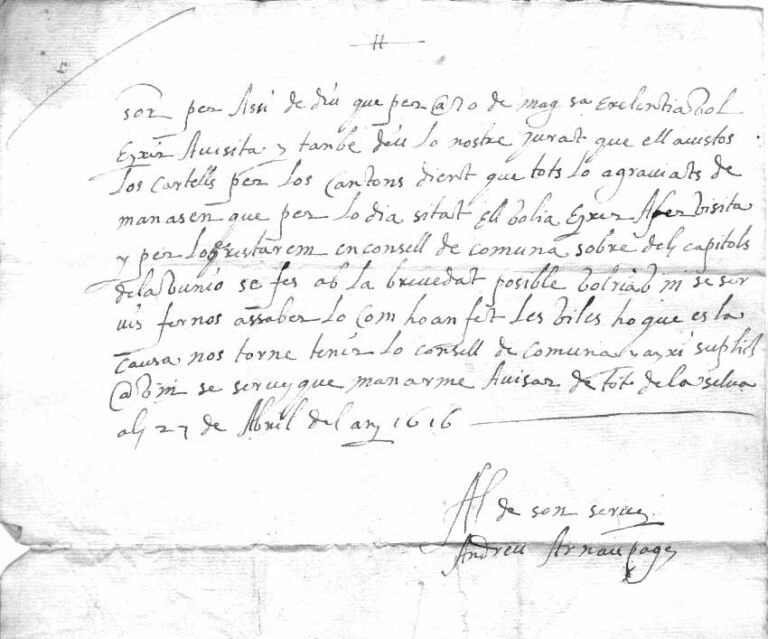 H
sor per Assi de diu que per @7o de mag sa Exelentia bol
Exir Avisita y tanbe diu lo nostre jurat que ell a vistos
los Cartells per los Cantons dient que tots lo agraviats de
manasen que per lo dia sitat Ell bolia Exir A fer bisita
y per lo restarem en consell de comuna sobre dels capitols
dela bunio se fes ab la brevedat posible bolria b m se ser
vis fernos assaber lo Com ho an fet les biles ho que es la
Causa nos torne tenir lo consell de Comuna y axi suplich
@ b m se servy que manarme Avisar de tot de la selva
als 27 de Abril del any 1616
Al de son servey
Andreu Arnau pages